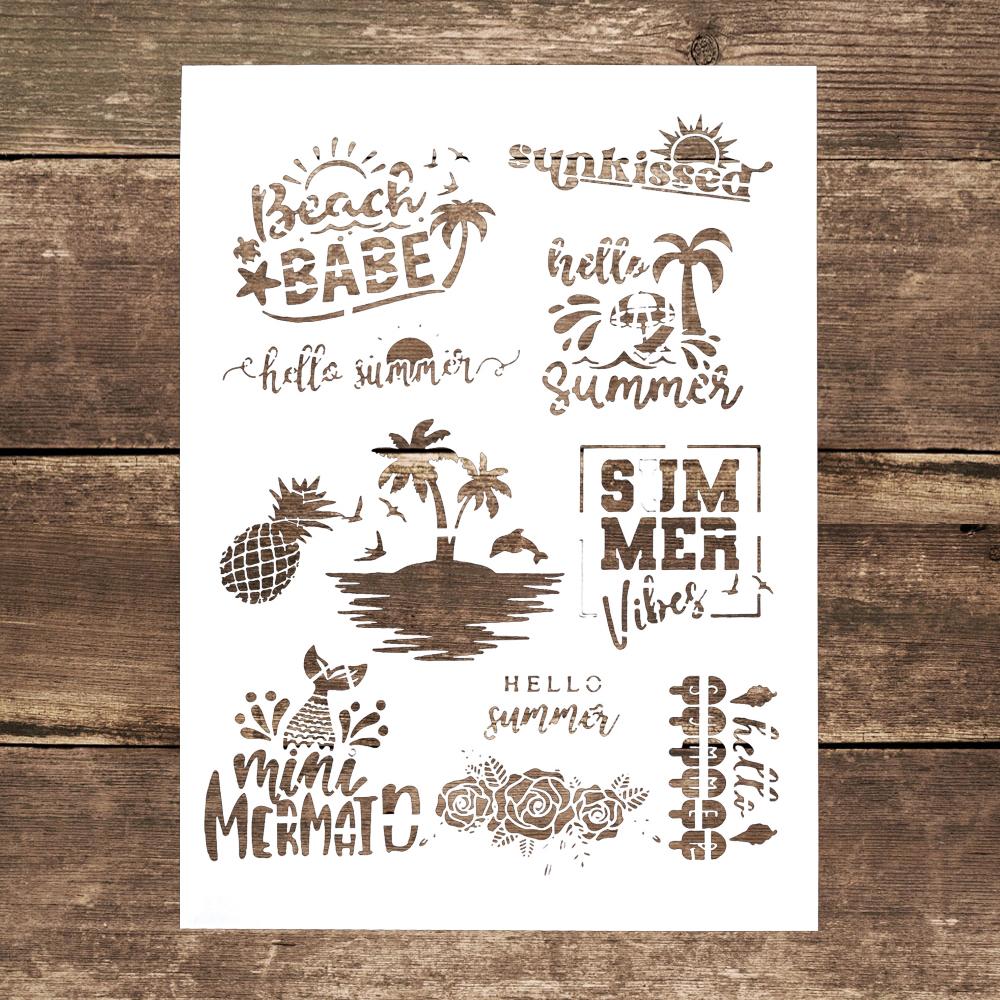 Beach
BABE
sunkissed
hello
Summer
hello summer
SUM
MER
Vibes
mini
MERMAID
HELLO
summer
hello
SUMMER